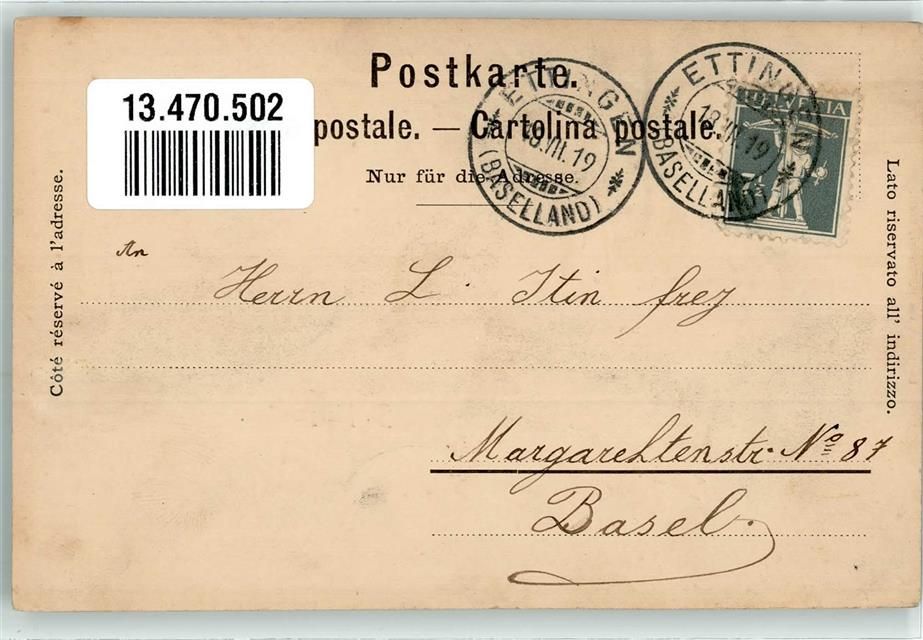 Postkarte.
13.470.502
postale. — Cartolina postale.
Nur für die Adresse.
ETTINGEN
18.VII.19
(BASELLAND)
ETTINGEN
18.VII.19
(BASELLAND)
HELVETIA
Côté réservé à l'adresse.
Lato riservato all' indirizzo.
An
Herrn L. Itin frey
Margarehtenstr. No 87
Basel.